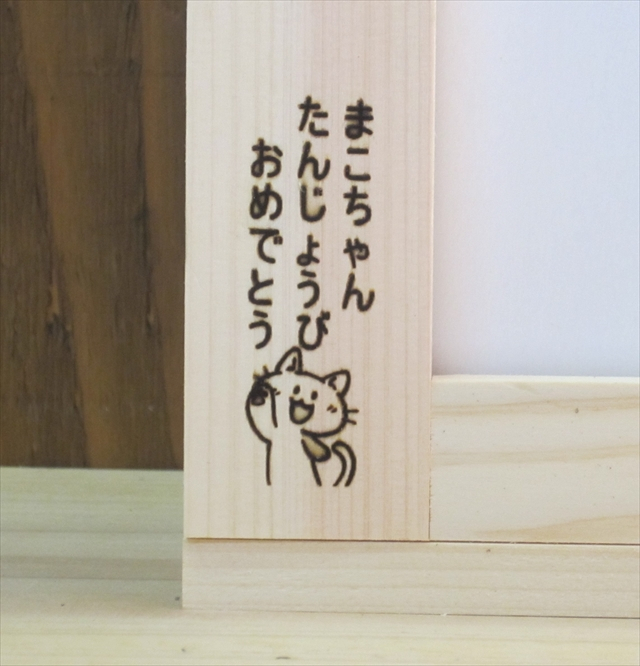 まこちゃん
たんじょうび
おめでとう